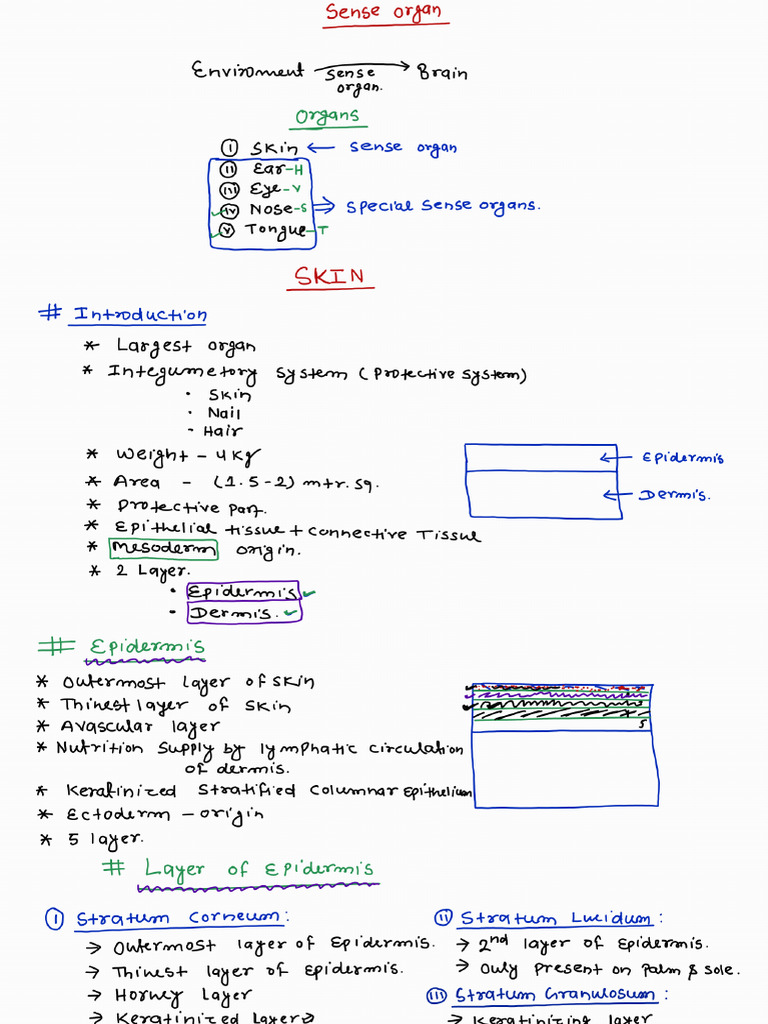 Sense organ
Enviroment sense organ. Brain
Organs
(i) Skin ← sense organ
(ii) Ear-H
(iii) Eye-V
(iv) Nose-S ⇒ Special Sense organs.
(v) Tongue-T
SKIN
# Introduction
* Largest organ
* Integumetory system (Protective system)
• Skin
• Nail
• Hair
* Weight - 4kg
* Area - (1.5-2) mtr.sq.
* Protective part.
* Epithelial tissue + connective Tissue
* Mesoderm origin.
* 2 Layer.
• Epidermis ✓
• Dermis. ✓
← Epidermis
← Dermis.
# Epidermis
* Outermost layer of skin
* Thinest layer of skin
* Avascular layer
* Nutrition supply by lymphatic circulation
of dermis.
* Keratinized Stratified Columnar Epithelium
* Ectoderm - origin
* 5 layer.
5
# Layer of Epidermis
(i) Stratum Corneum:
→ Outermost layer of Epidermis.
→ Thinest layer of Epidermis.
→ Horney Layer
→ Keratinized Layer
(ii) Stratum Lucidum:
→ 2nd layer of Epidermis.
→ Only Present on Palm & Sole.
(iii) Stratum Granulosum:
→ Keratinizing layer